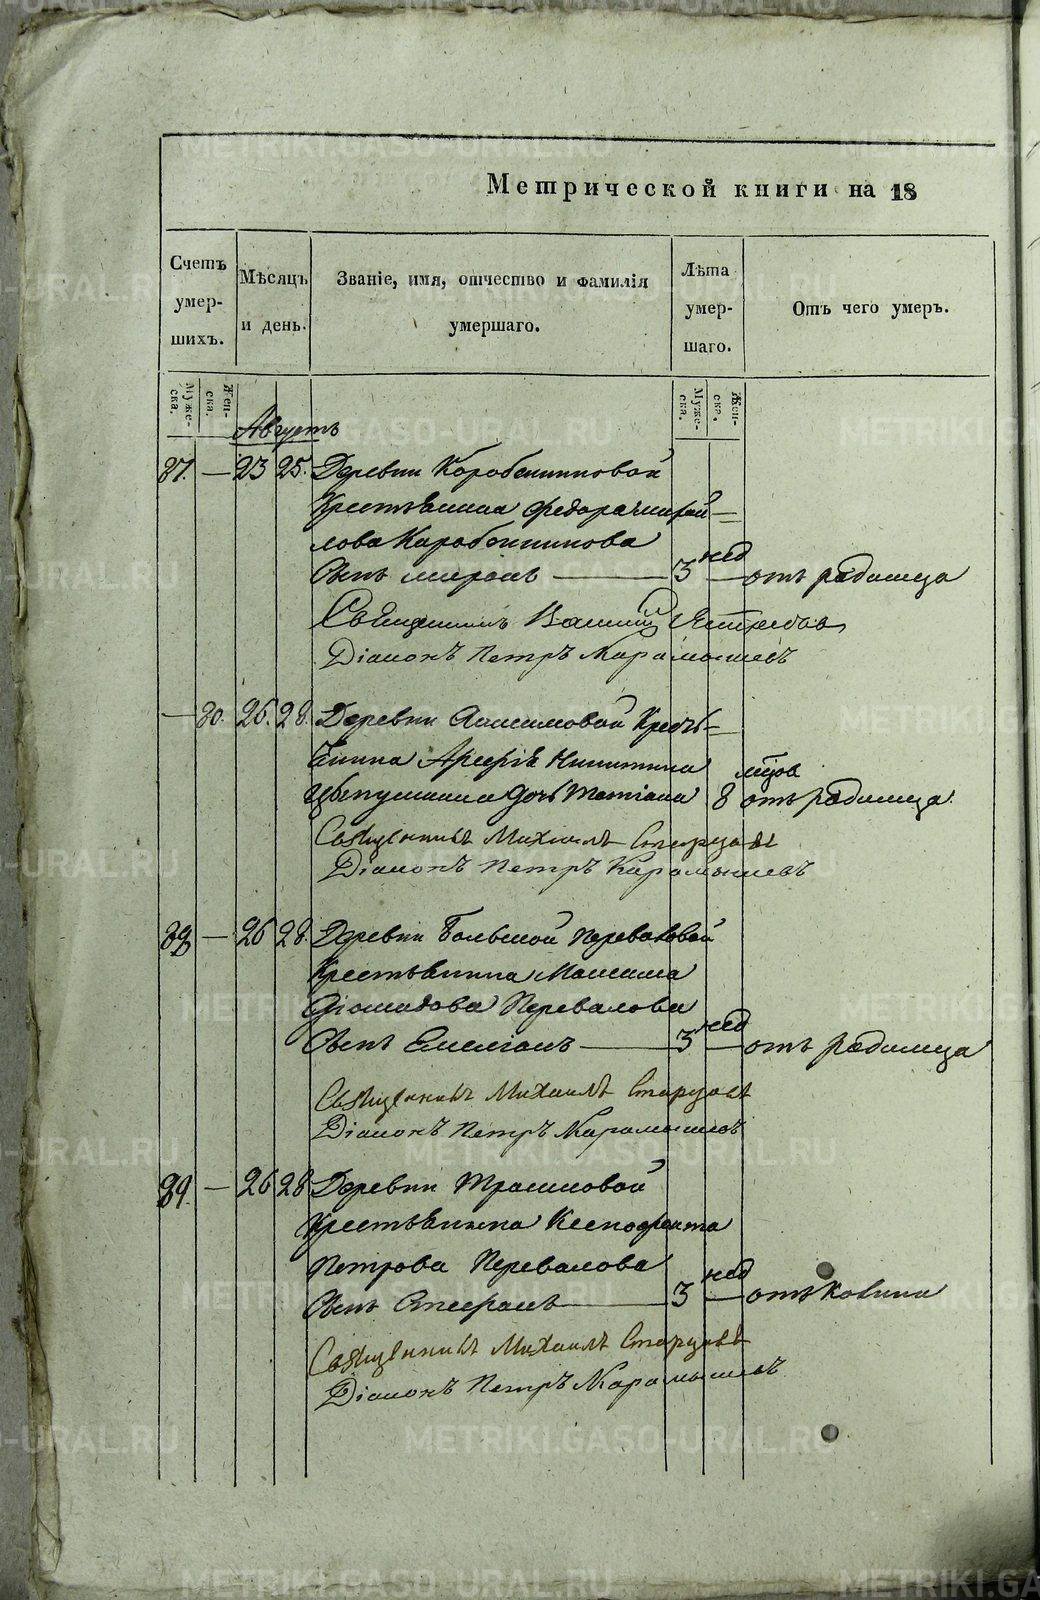 Метрической книги на 18
Счетъ умер- шихъ.
Мѣсяцъ и день.
Званіе, имя, отчество и фамилія умершаго.
Лѣта умер- шаго.
Отъ чего умеръ.
Муже- ска.
Жен- ска.
Муже- ска.
Жен- ска.
Августъ
87. — 23 25. Деревни Коробейниковой
Крестьянина Федора
лова Коробейникова
Сынъ Миронъ — 3 нед — отъ родимца
Священникъ Василій Ястребовъ
Діаконъ Петръ Карамышевъ
— 80. 26. 28. Деревни Анисимовой Кресть-
янина Арсенія Никитина
дочь Татіана 8 мѣсѧцов отъ родимца.
Священникъ Михаилъ Старцовъ
Діаконъ Петръ Карамышевъ
88 — 26 28. Деревни Большой Переваловой
Крестьянина Максима
Діомидова Перевалова
Сынъ Емеліанъ — 3 нед — отъ родимца
Священникъ Михаилъ Старцовъ
Діаконъ Петръ Карамышевъ
89. — 26 28 Деревни
Крестьянина Ксенофонта
Петрова Перевалова
Сынъ — 3 нед — отъ
Священникъ Михаилъ Старцовъ
Діаконъ Петръ Карамышевъ
METRIKI.GASO-URAL.RU